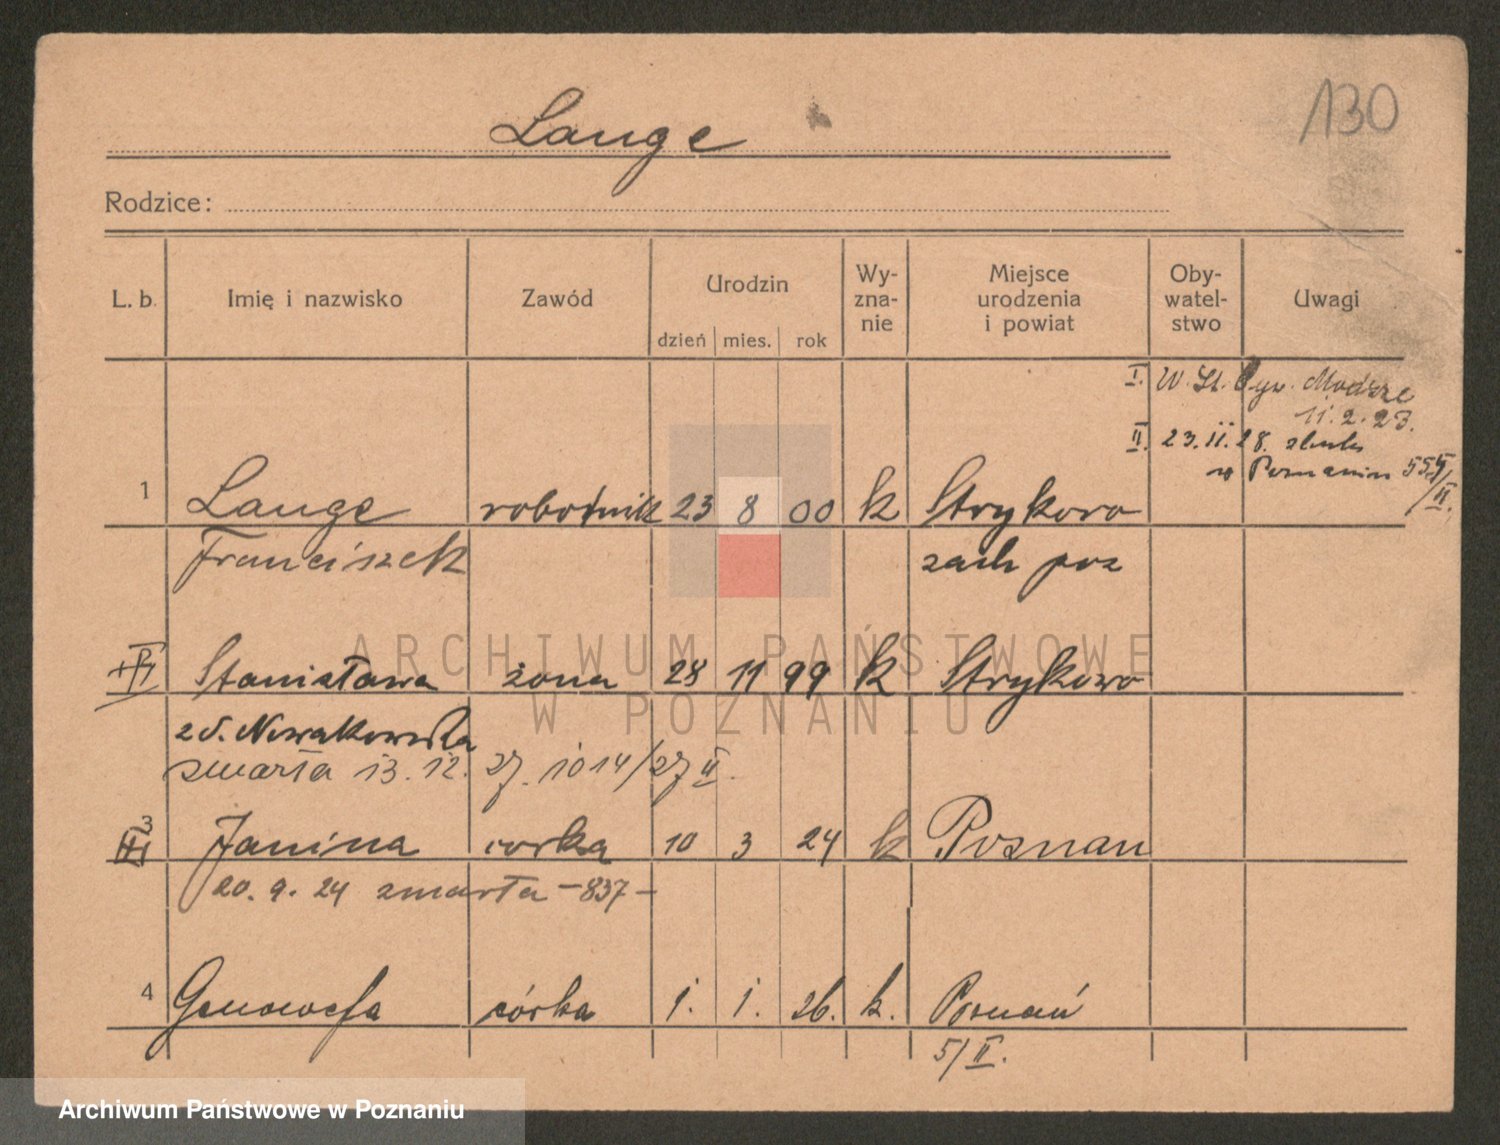 130
Lange
Rodzice:
L. b. Imię i nazwisko Zawód Urodzin dzień mies. rok Wy-zna-nie Miejsce urodzenia i powiat Oby-watel-stwo Uwagi
I. W. St. Cyw.
11.2.23.
II. 23.11.28.
w Poznaniu
1 Lange robotnik 23 8 00 k Strykowo
Franciszek zach poz
Stanisława żona 28 11 99 k Strykowo
zd. Nowakowska
zmarła 13.12.27. 1014/27 II.
3 Janina corka 10 3 24 k Poznan
20.9.24 zmarła -837-
4 Genowefa córka 1. 1. 26. k. Poznań
5/II.
ARCHIWUM PAŃSTWOWE
W POZNANIU
Archiwum Państwowe w Poznaniu